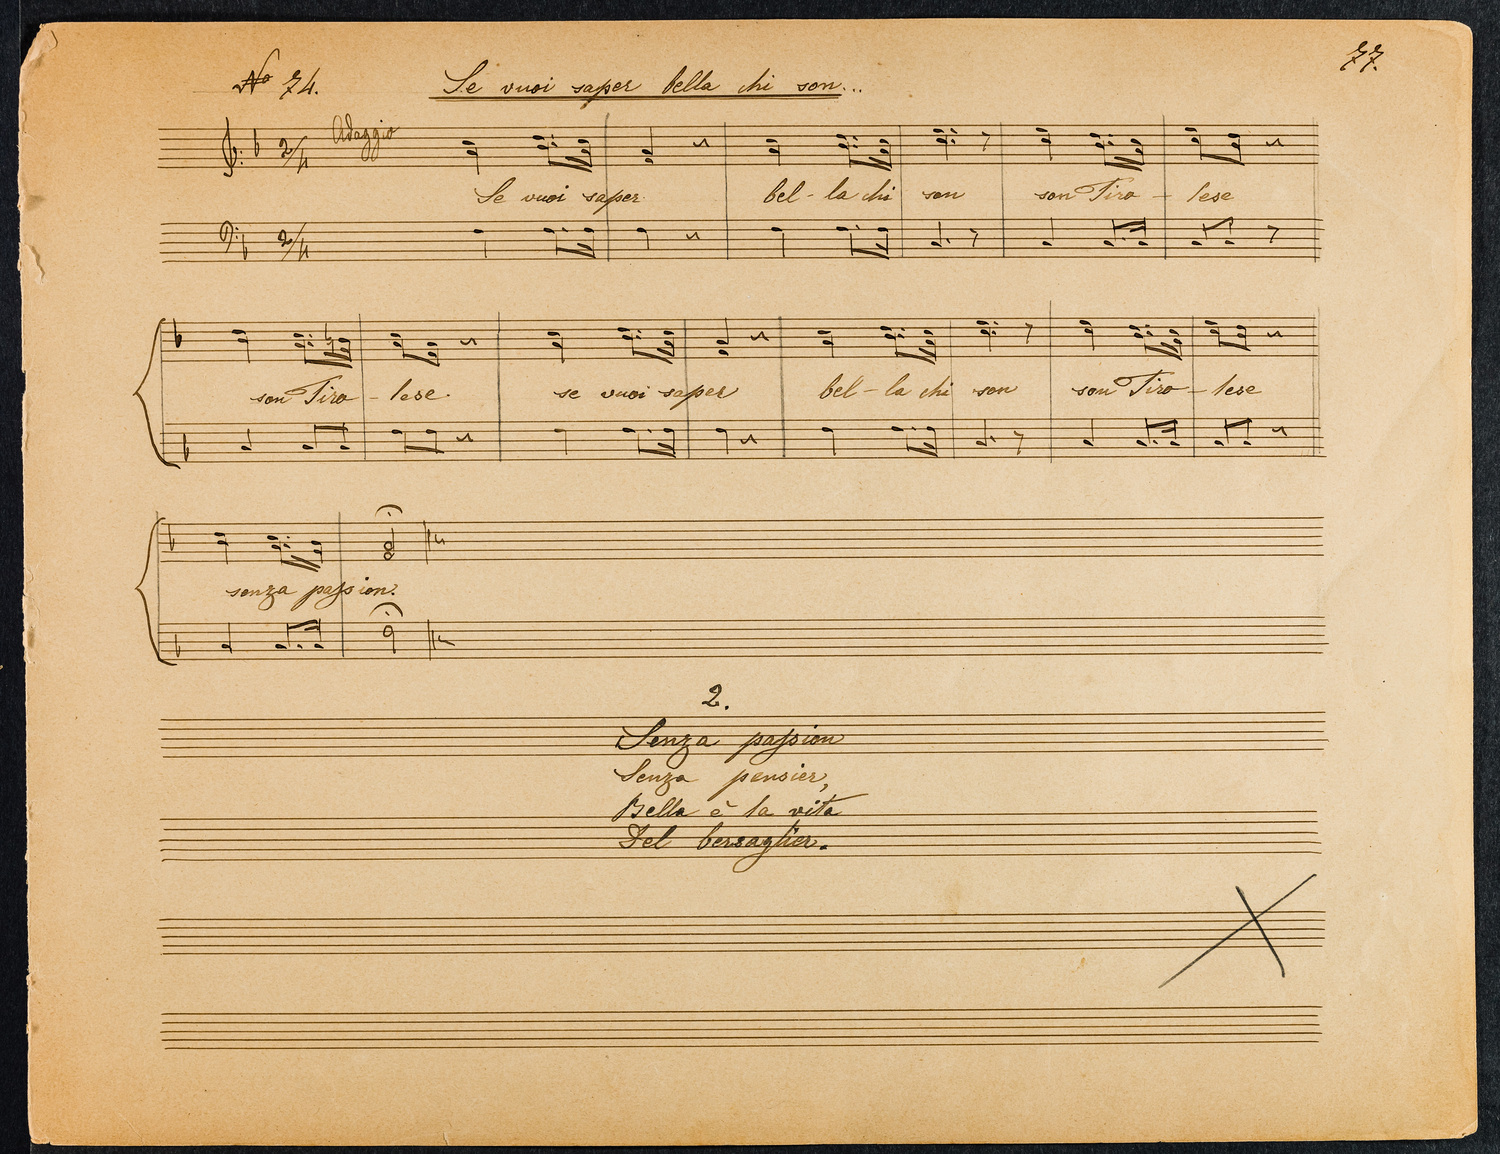 77.
No 74. Se vuoi saper bella chi son...
Adaggio
2/4
Se vuoi saper bel - la chi son son Tiro - lese
2/4
son Tiro - lese. se vuoi saper bel - la chi son son Tiro - lese
senza passion.
2.
Senza passion
Senza pensier,
Bella è la vita
Del bersaglier.